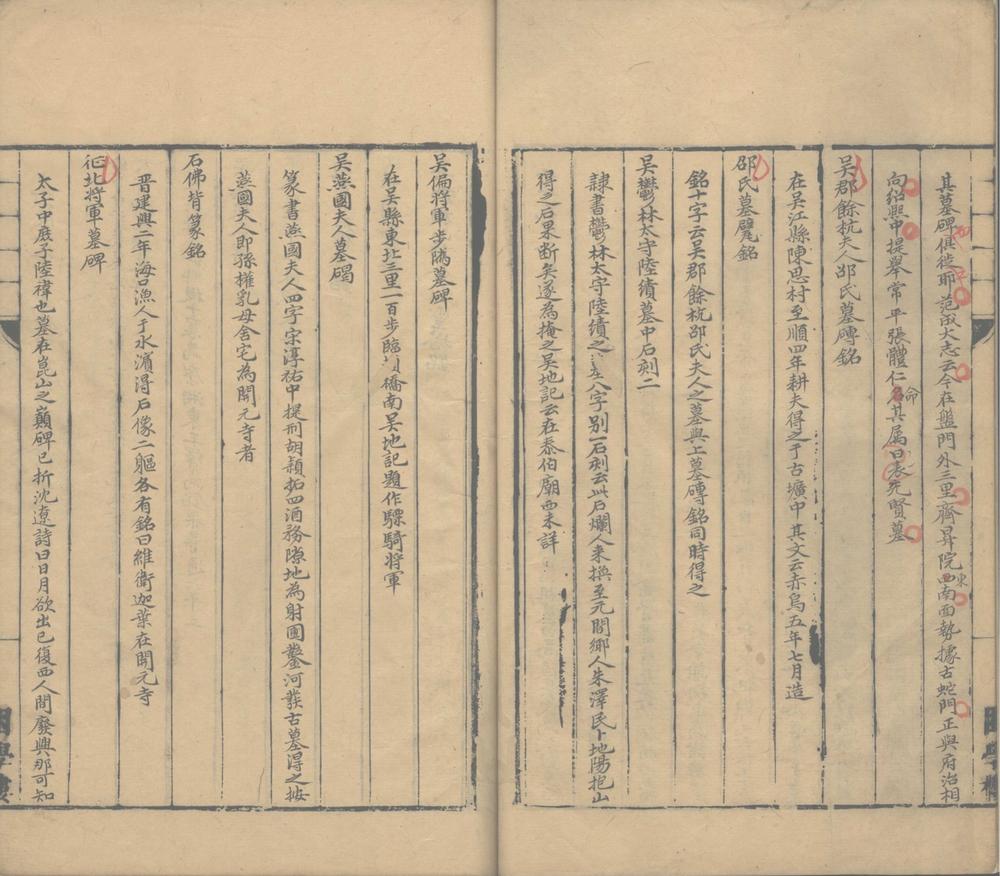 其墓碑俱徙耶范成大志云今在盤門外三里齊昇院西南面勢據古蛇門正與府治相
東
向紹熙中提舉常平張體仁名其屬曰表先賢墓
命
吳郡餘杭夫人邲氏墓磚銘
在吳江縣陳思村至順四年耕夫得之于古壙中其文云赤烏五年七月造
邵氏墓甓銘
銘十字云吳郡餘杭邵氏夫人之墓與上墓磚銘同時得之
吳鬱林太守陸績墓中石刻二
隸書鬱林太守陸績之八字別一石刻云此石爛人來換至元間鄉人朱澤民卜地陽抱山
得之石果斷矣遂為掩之吳地記云在泰伯廟西未詳
吳偏將軍步隲墓碑
在吳縣東北三里一百步臨頓橋南吳地記題作驃騎將軍
吳燕國夫人墓碣
篆書燕國夫人四字宋淳祐中提刑胡穎拓四酒務隙地為射圃鑿河發古墓得之按
燕國夫人即孫權乳母舍宅為開元寺者
石佛背篆銘
晉建興二年海口漁人于水濱得石像二軀各有銘曰維衛迦葉在開元寺
征北將軍墓碑
太子中庶子陸褘也墓在崑山之巔碑已折沈遼詩曰日月欲出已復西人間廢興那可知